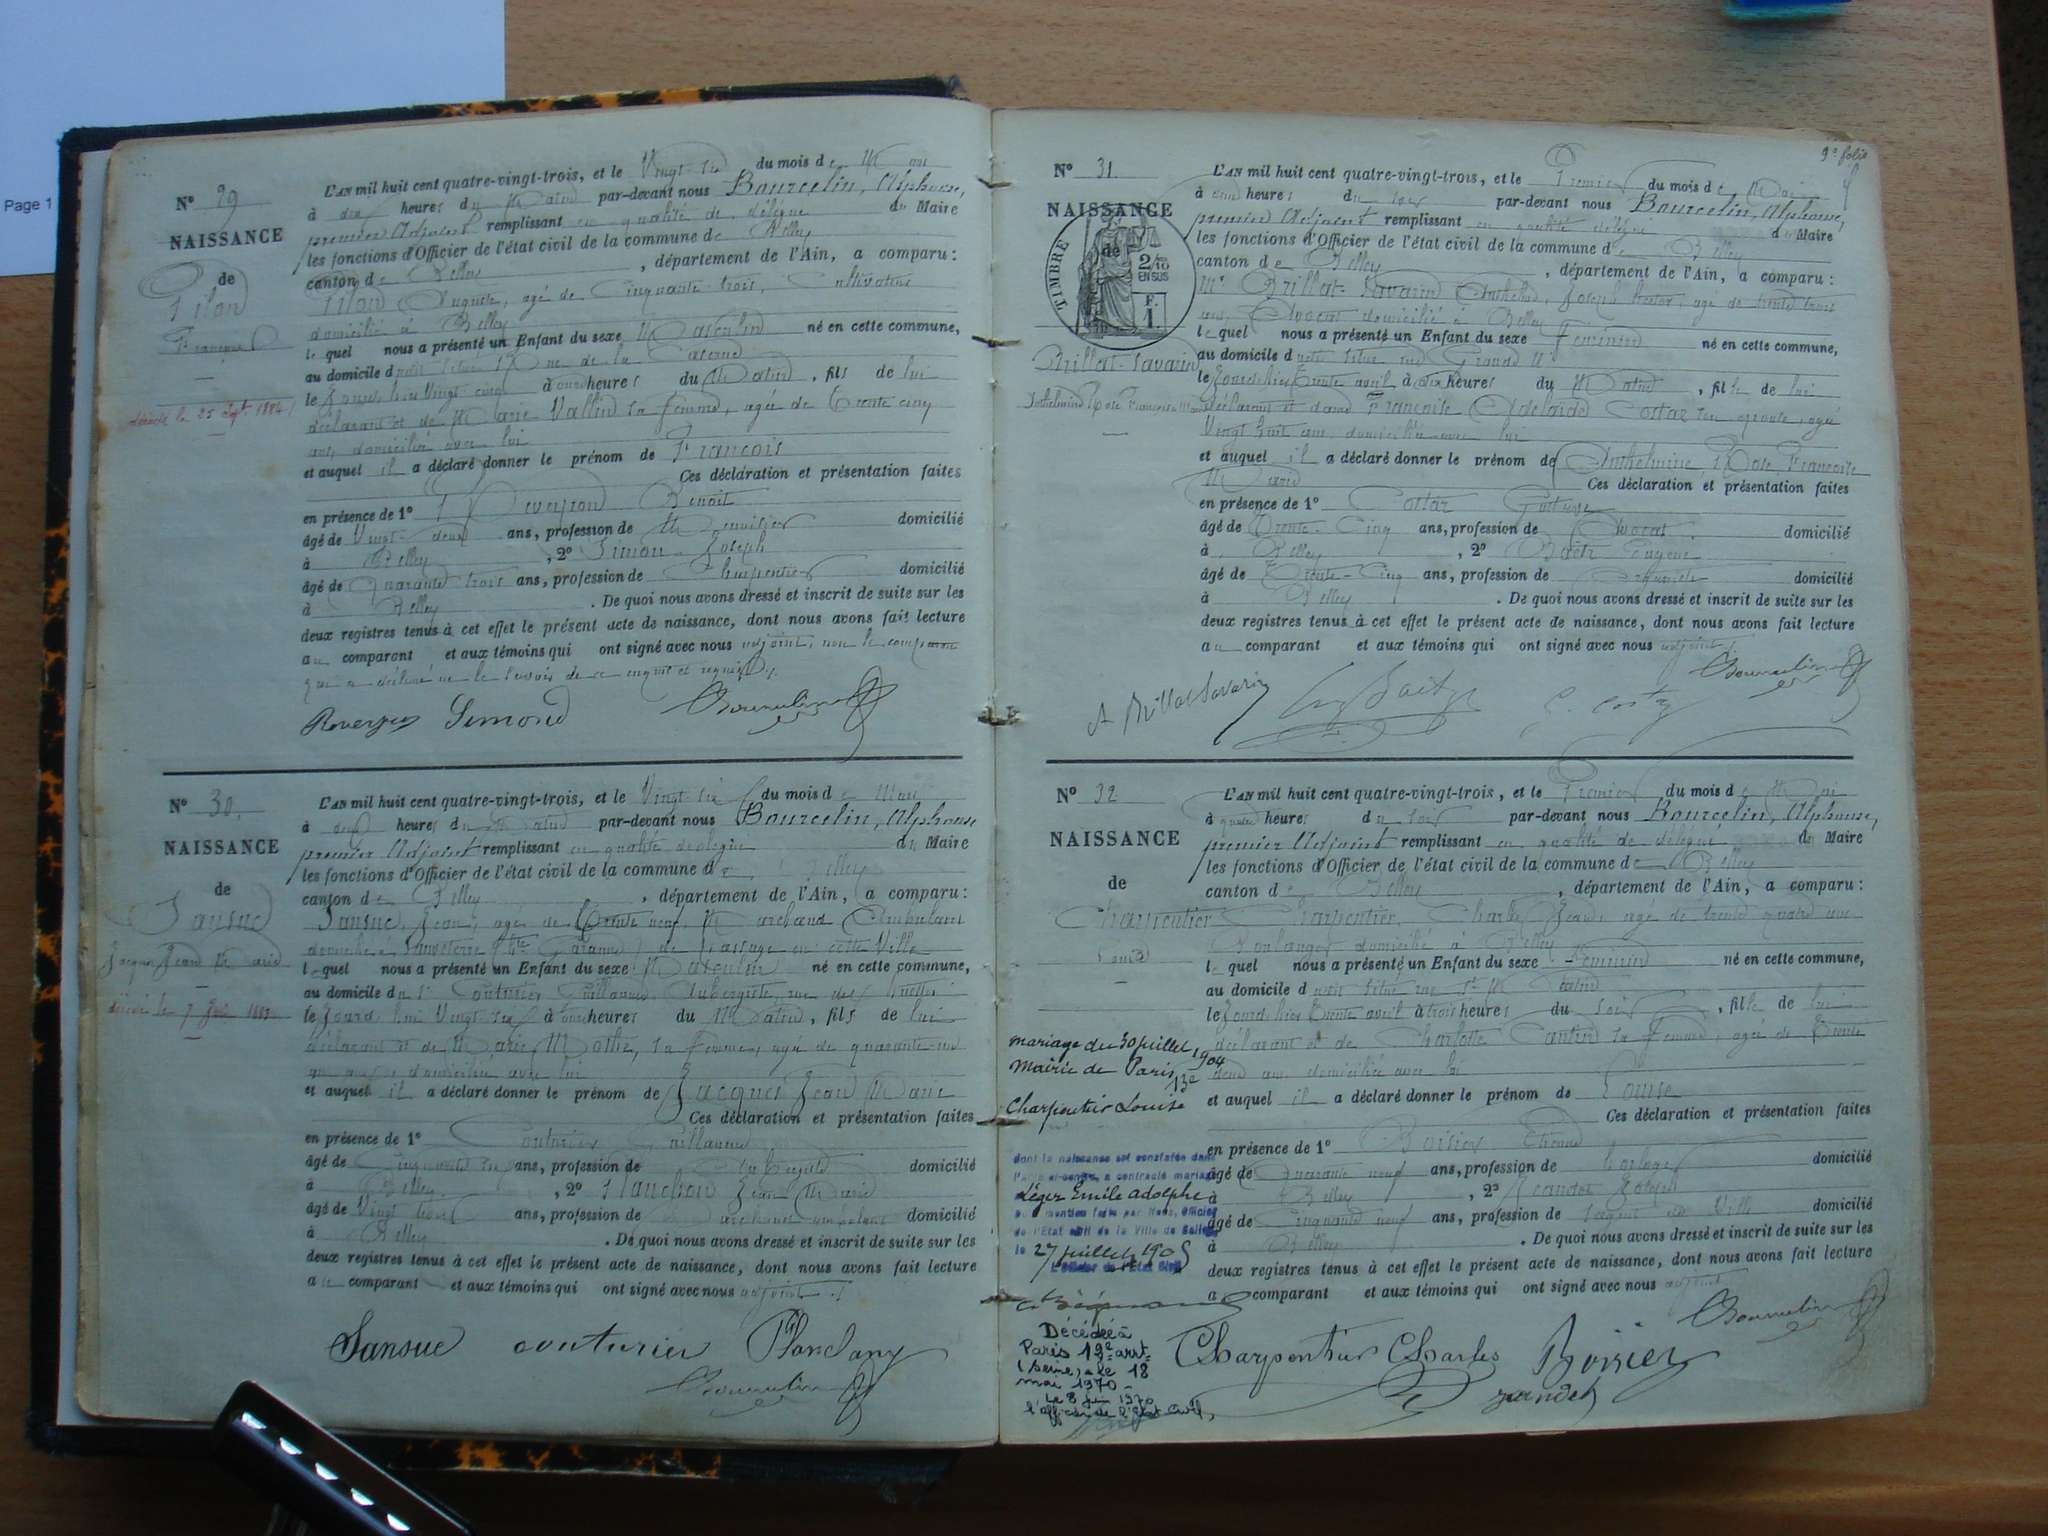 Page 1
N° 29
NAISSANCE
de
Pilon
François
décédé le 25 Sept 1884
L'AN mil huit cent quatre-vingt-trois, et le Vingt-six du mois de
à dix heures du Matin par-devant nous Bourcelin, Alphonse,
premier Adjoint remplissant en qualité de délégué du Maire
les fonctions d'Officier de l'état civil de la commune de Belley
canton de Belley, département de l'Ain, a comparu:
Auguste, agé de Cinquante trois, Cultivateur
domicilié à Belley
lequel nous a présenté un Enfant du sexe Masculin né en cette commune,
au domicile de la Caserne
le Jourd'hui Vingt cinq à onze heures du Matin, fils de lui
déclarant et de Marie Vallin sa femme, agée de Trente cinq
ans, domiciliée avec lui
et auquel il a déclaré donner le prénom de François
Ces déclaration et présentation faites
en présence de 1° Benoit
âgé de Vingt-deux ans, profession de Menuisier domicilié
à Belley, 2° Simon Joseph
âgé de Quarante trois ans, profession de Charpentier domicilié
à Belley. De quoi nous avons dressé et inscrit de suite sur les
deux registres tenus à cet effet le présent acte de naissance, dont nous avons fait lecture
au comparant et aux témoins qui ont signé avec nous adjoint, non le comparant
qui a déclaré ne le savoir de ce enquis et requis
Simond
N° 30.
NAISSANCE
de
Sansuc
Jacques Jean Marie
décédé le 7 1883
L'AN mil huit cent quatre-vingt-trois, et le Vingt-six du mois de
à heures du Matin par-devant nous Bourcelin, Alphonse
premier Adjoint remplissant en qualité de délégué du Maire
les fonctions d'Officier de l'état civil de la commune de Belley
canton de Belley, département de l'Ain, a comparu:
Sansuc, Jean, agé de Trente neuf, Marchand Ambulant
domicilié à Sauveterre (Hte Garonne) de passage en cette Ville
lequel nous a présenté un Enfant du sexe Masculin né en cette commune,
au domicile du Sr Couturier Guillaume, Aubergiste, rue des
le Jourd'hui Vingt six à heures du Matin, fils de lui
déclarant et de Marie Mothe, sa femme, agée de quarante-un
ans domiciliée avec lui
et auquel il a déclaré donner le prénom de Jacques Jean Marie
Ces déclaration et présentation faites
en présence de 1° Couturier Guillaume
âgé de Cinquante ans, profession de Aubergiste domicilié
à Belley, 2° Planchon Jean Marie
âgé de Vingt trois ans, profession de Marchand ambulant domicilié
à Belley. De quoi nous avons dressé et inscrit de suite sur les
deux registres tenus à cet effet le présent acte de naissance, dont nous avons fait lecture
au comparant et aux témoins qui ont signé avec nous adjoint
Sansuc couturier
9e folio
N° 31
NAISSANCE
de
TIMBRE
2/10
EN SUS
F.
1.
Brillat-Savarin
Anthelmine Rose Françoise Marie
L'AN mil huit cent quatre-vingt-trois, et le Premier du mois de Mai
à heures du soir par-devant nous Bourcelin, Alphonse,
premier Adjoint remplissant en qualité délégué du Maire
les fonctions d'Officier de l'état civil de la commune de Belley
canton de Belley, département de l'Ain, a comparu:
Mr Brillat-Savarin Anthelme, Joseph Hector, agé de trente trois
ans, Avocat domicilié à Belley
lequel nous a présenté un Enfant du sexe Féminin né en cette commune,
au domicile situé rue Grand
le Jourd'hier Trente avril à dix heures du Matin, fille de lui
déclarant et dame Françoise Adelaïde Costaz son épouse, agée
Vingt huit ans domiciliée avec lui
et auquel il a déclaré donner le prénom de Anthelmine, Rose Françoise
Marie Ces déclaration et présentation faites
en présence de 1° Costaz Gustave
âgé de Trente-Cinq ans, profession de Avocat domicilié
à Belley, 2° Eugène
âgé de Trente-Cinq ans, profession de domicilié
à Belley. De quoi nous avons dressé et inscrit de suite sur les
deux registres tenus à cet effet le présent acte de naissance, dont nous avons fait lecture
au comparant et aux témoins qui ont signé avec nous adjoint
A Brillat Savarin
N° 32
NAISSANCE
de
Charpentier
Louise
mariage du 30 juillet 1904
Mairie de Paris 13e
Charpentier Louise
dont la naissance est constatée dans
l'acte ci-contre, a contracté mariage
Léger Emile Adolphe
mention faite par Nous, Officier
de l'Etat civil de la Ville de Belley
le 27 juillet 1905
L'Officier de l'Etat Civil
Décédée à
Paris 19e arrt
(Seine) le 18
mai 1970
Le 8 Juin 1970
l'officier de l'état civil,
L'AN mil huit cent quatre-vingt-trois, et le Premier du mois de Mai
à quatre heures du soir par-devant nous Bourcelin, Alphonse,
premier Adjoint remplissant en qualité de délégué du Maire
les fonctions d'Officier de l'état civil de la commune de Belley
canton de Belley, département de l'Ain, a comparu:
Charpentier, Charles Jean, agé de trente quatre ans
Boulanger domicilié à Belley
lequel nous a présenté un Enfant du sexe Féminin né en cette commune,
au domicile situé rue St Martin
le Jourd'hier Trente avril à trois heures du soir, fille de lui
déclarant et de Charlotte Cantin sa femme, agée de Trente
deux ans domiciliée avec lui
et auquel il a déclaré donner le prénom de Louise
Ces déclaration et présentation faites
en présence de 1° Boisier Etienne
âgé de Quarante neuf ans, profession de horloger domicilié
à Belley, 2°
âgé de Cinquante neuf ans, profession de Sergent de Ville domicilié
à Belley. De quoi nous avons dressé et inscrit de suite sur les
deux registres tenus à cet effet le présent acte de naissance, dont nous avons fait lecture
au comparant et aux témoins qui ont signé avec nous adjoint
Charpentier Charles Boisier